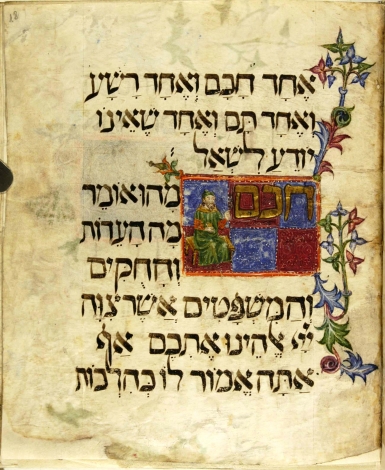 אחד חכם ואחד רשע
ואחד תם ואחד שאינו
יודע לשאל
חכם מהו אומר
מה העדות
והחקים
והמשפטים אשר צוה
יי אלהינו אתכם אף
אתה אמור לו כהלכות